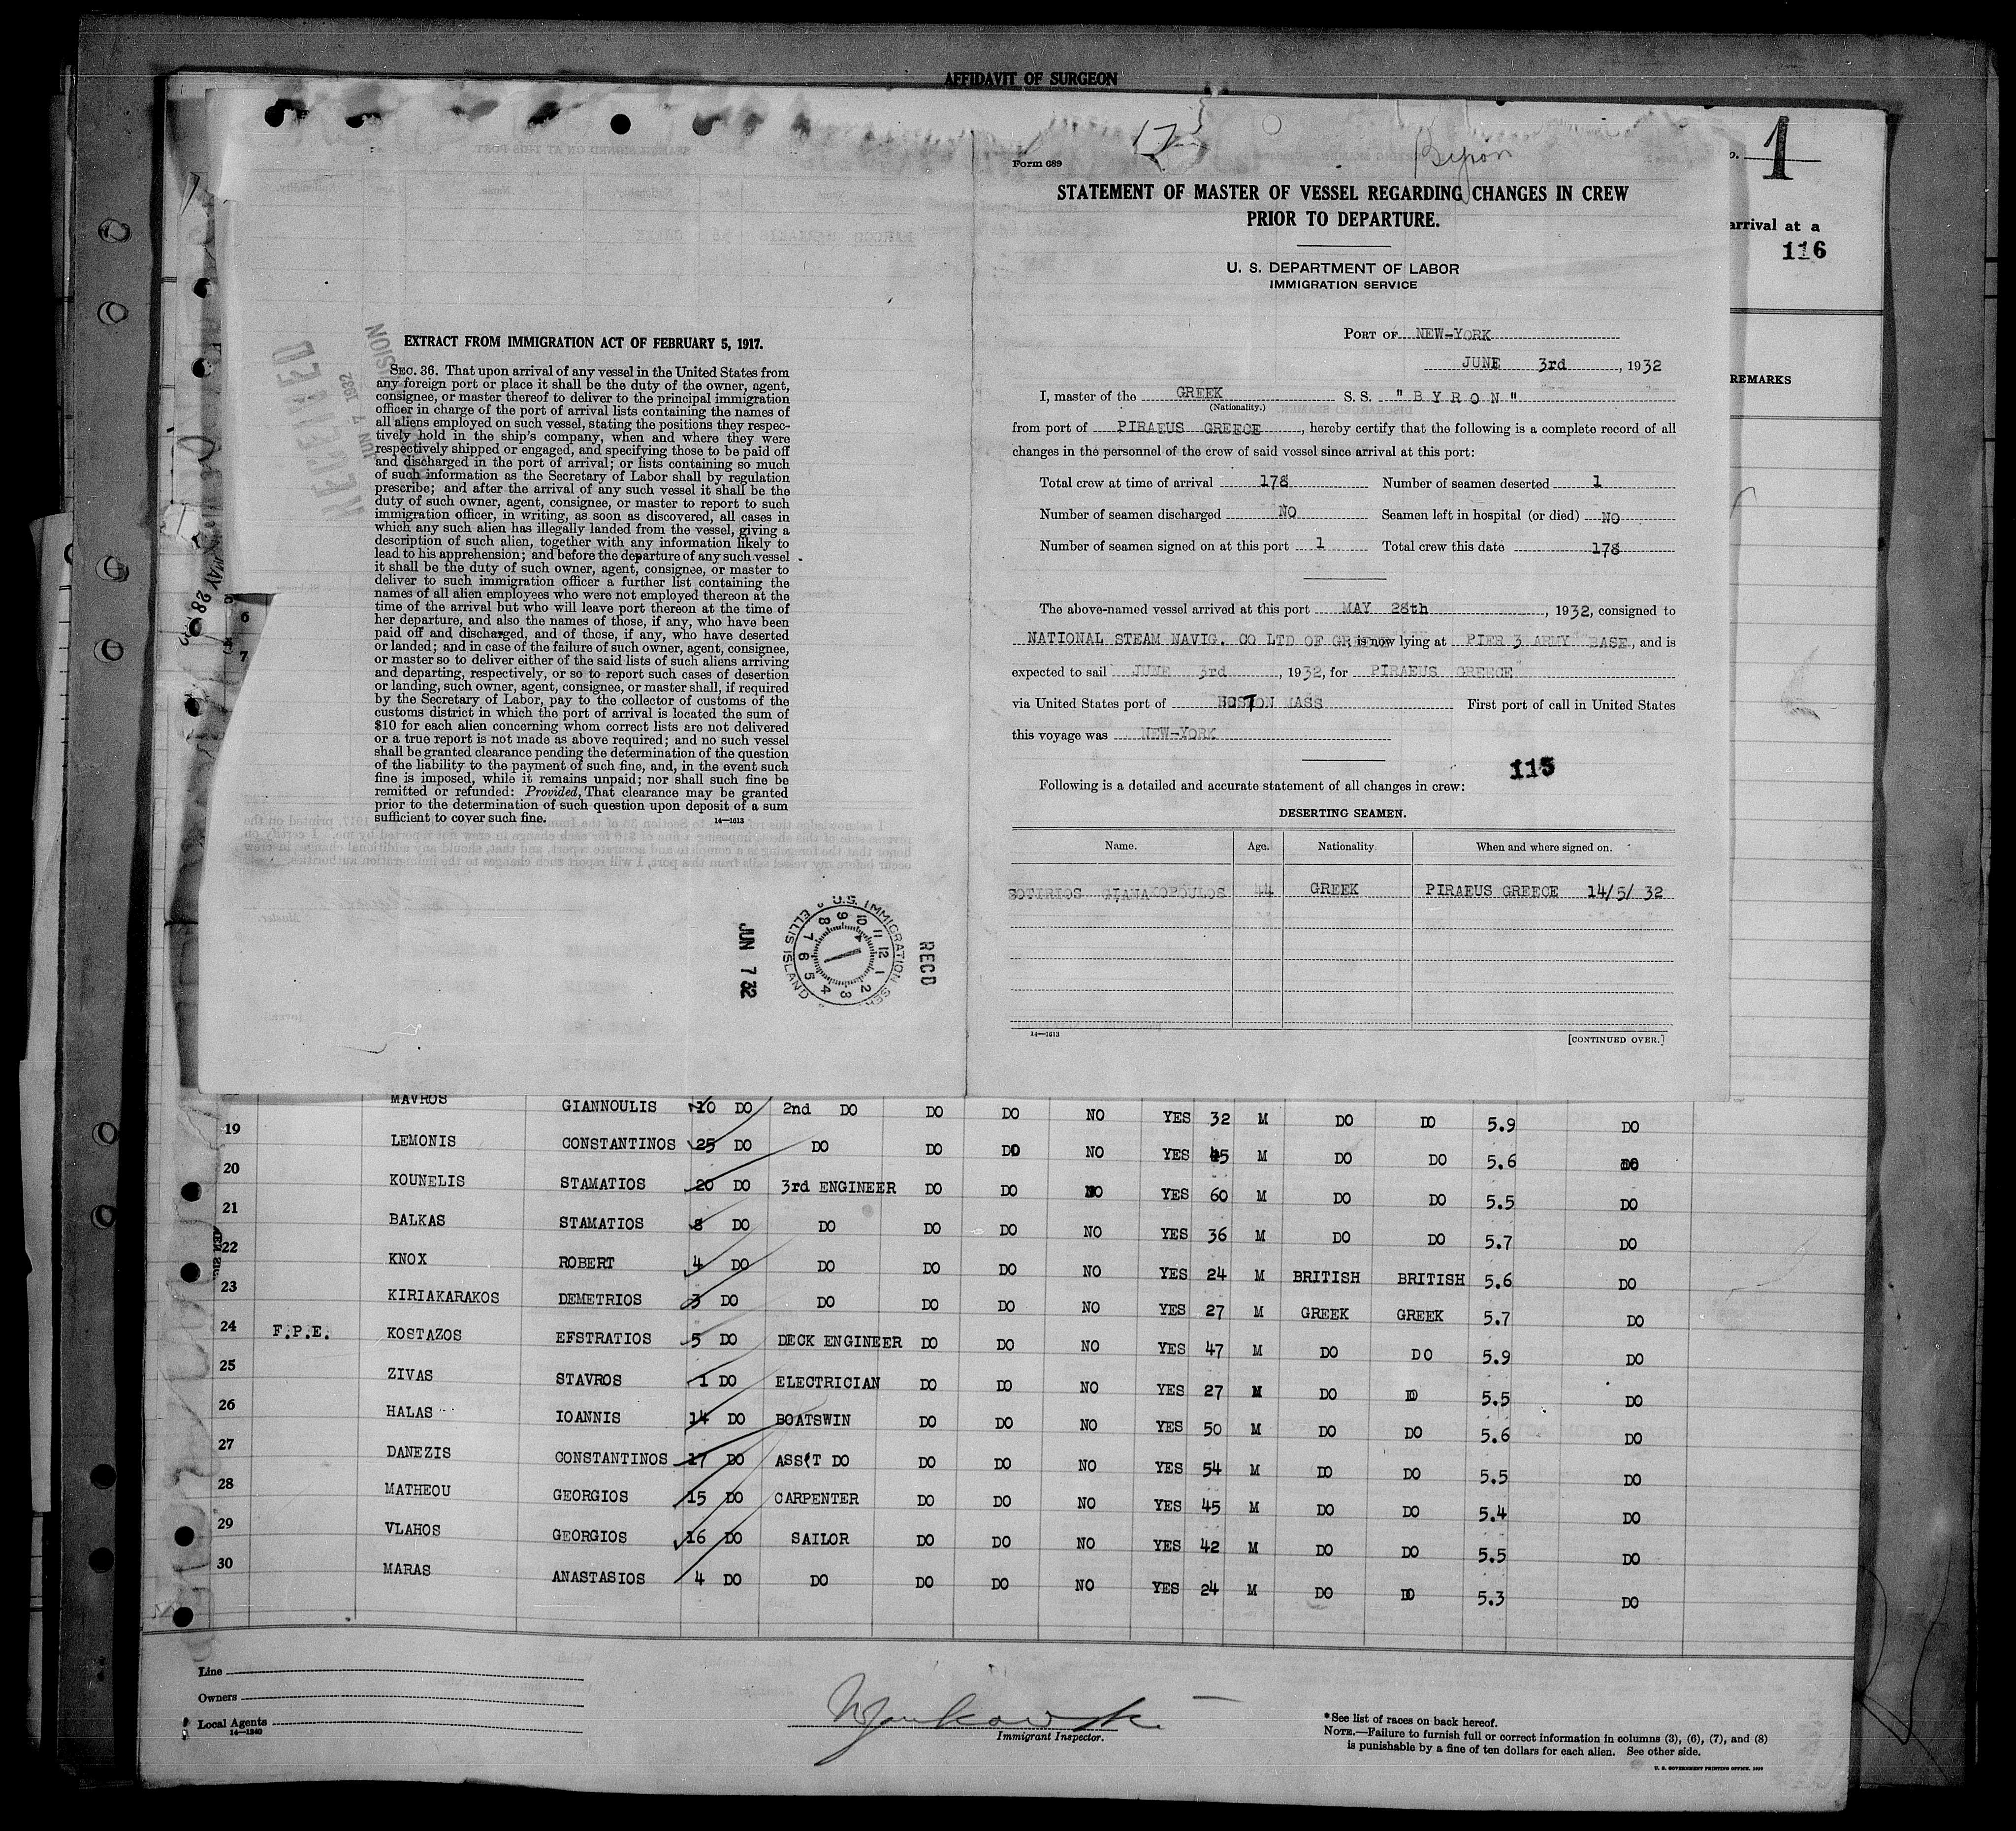 AFFIDAVIT OF SURGEON
1
arrival at a
116
REMARKS
EXTRACT FROM IMMIGRATION ACT OF FEBRUARY 5, 1917.
SEC. 36. That upon arrival of any vessel in the United States from
any foreign port or place it shall be the duty of the owner, agent,
consignee, or master thereof to deliver to the principal immigration
officer in charge of the port of arrival lists containing the names of
all aliens employed on such vessel, stating the positions they respec-
tively hold in the ship's company, when and where they were
respectively shipped or engaged, and specifying those to be paid off
and discharged in the port of arrival; or lists containing so much
of such information as the Secretary of Labor shall by regulation
prescribe; and after the arrival of any such vessel it shall be the
duty of such owner, agent, consignee, or master to report to such
immigration officer, in writing, as soon as discovered, all cases in
which any such alien has illegally landed from the vessel, giving a
description of such alien, together with any information likely to
lead to his apprehension; and before the departure of any such vessel
it shall be the duty of such owner, agent, consignee, or master to
deliver to such immigration officer a further list containing the
names of all alien employees who were not employed thereon at the
time of the arrival but who will leave port thereon at the time of
her departure, and also the names of those, if any, who have been
paid off and discharged, and of those, if any, who have deserted
or landed; and in case of the failure of such owner, agent, consignee,
or master so to deliver either of the said lists of such aliens arriving
and departing, respectively, or so to report such cases of desertion
or landing, such owner, agent, consignee, or master shall, if required
by the Secretary of Labor, pay to the collector of customs of the
customs district in which the port of arrival is located the sum of
$10 for each alien concerning whom correct lists are not delivered
or a true report is not made as above required; and no such vessel
shall be granted clearance pending the determination of the question
of the liability to the payment of such fine, and, in the event such
fine is imposed, while it remains unpaid; nor shall such fine be
remitted or refunded: Provided, That clearance may be granted
prior to the determination of such question upon deposit of a sum
sufficient to cover such fine.
14—1613
RECEIVED
JUN 7 1932
JUN 7 32
U.S. IMMIGRATION SER. ELLIS ISLAND
RECD
MAY 28
6
7
Form 689
17
Byron
STATEMENT OF MASTER OF VESSEL REGARDING CHANGES IN CREW
PRIOR TO DEPARTURE.
U. S. DEPARTMENT OF LABOR
IMMIGRATION SERVICE
PORT OF NEW-YORK
JUNE 3rd, 1932
I, master of the GREEK S. S. "BYRON"
(Nationality.)
from port of PIRAEUS GREECE, hereby certify that the following is a complete record of all
changes in the personnel of the crew of said vessel since arrival at this port:
Total crew at time of arrival 178 Number of seamen deserted 1
Number of seamen discharged NO Seamen left in hospital (or died) NO
Number of seamen signed on at this port 1 Total crew this date 178
The above-named vessel arrived at this port MAY 28th, 1932, consigned to
NATIONAL STEAM NAVIG. CO LTD OF GREECE is now lying at PIER 3 ARMY BASE, and is
expected to sail JUNE 3rd, 1932, for PIRAEUS GREECE
via United States port of BOSTON MASS First port of call in United States
this voyage was NEW-YORK
115
Following is a detailed and accurate statement of all changes in crew:
DESERTING SEAMEN.
Name. Age. Nationality When and where signed on.
SOTIRIOS GIANAKOPOULOS 44 GREEK PIRAEUS GREECE 14/5/32
14—1613
[CONTINUED OVER.]
MAVROS GIANNOULIS 10 DO 2nd DO DO DO NO YES 32 M DO DO 5.9 DO
19 LEMONIS CONSTANTINOS 25 DO DO DO DO NO YES 45 M DO DO 5.6 DO
20 KOUNELIS STAMATIOS 20 DO 3rd ENGINEER DO DO NO YES 60 M DO DO 5.5 DO
21 BALKAS STAMATIOS 8 DO DO DO DO NO YES 36 M DO DO 5.7 DO
22 KNOX ROBERT 4 DO DO DO DO NO YES 24 M BRITISH BRITISH 5.6 DO
23 KIRIAKARAKOS DEMETRIOS 3 DO DO DO DO NO YES 27 M GREEK GREEK 5.7 DO
24 F.P.E. KOSTAZOS EFSTRATIOS 5 DO DECK ENGINEER DO DO NO YES 47 M DO DO 5.9 DO
25 ZIVAS STAVROS 1 DO ELECTRICIAN DO DO NO YES 27 M DO DO 5.5 DO
26 HALAS IOANNIS 14 DO BOATSWIN DO DO NO YES 50 M DO DO 5.6 DO
27 DANEZIS CONSTANTINOS 17 DO ASS'T DO DO DO NO YES 54 M DO DO 5.5 DO
28 MATHEOU GEORGIOS 15 DO CARPENTER DO DO NO YES 45 M DO DO 5.4 DO
29 VLAHOS GEORGIOS 16 DO SAILOR DO DO NO YES 42 M DO DO 5.5 DO
30 MARAS ANASTASIOS 4 DO DO DO DO NO YES 24 M DO DO 5.3 DO
Line
Owners
Local Agents
14—1240
Immigrant Inspector.
*See list of races on back hereof.
NOTE.—Failure to furnish full or correct information in columns (3), (6), (7), and (8)
is punishable by a fine of ten dollars for each alien. See other side.
U. S. GOVERNMENT PRINTING OFFICE